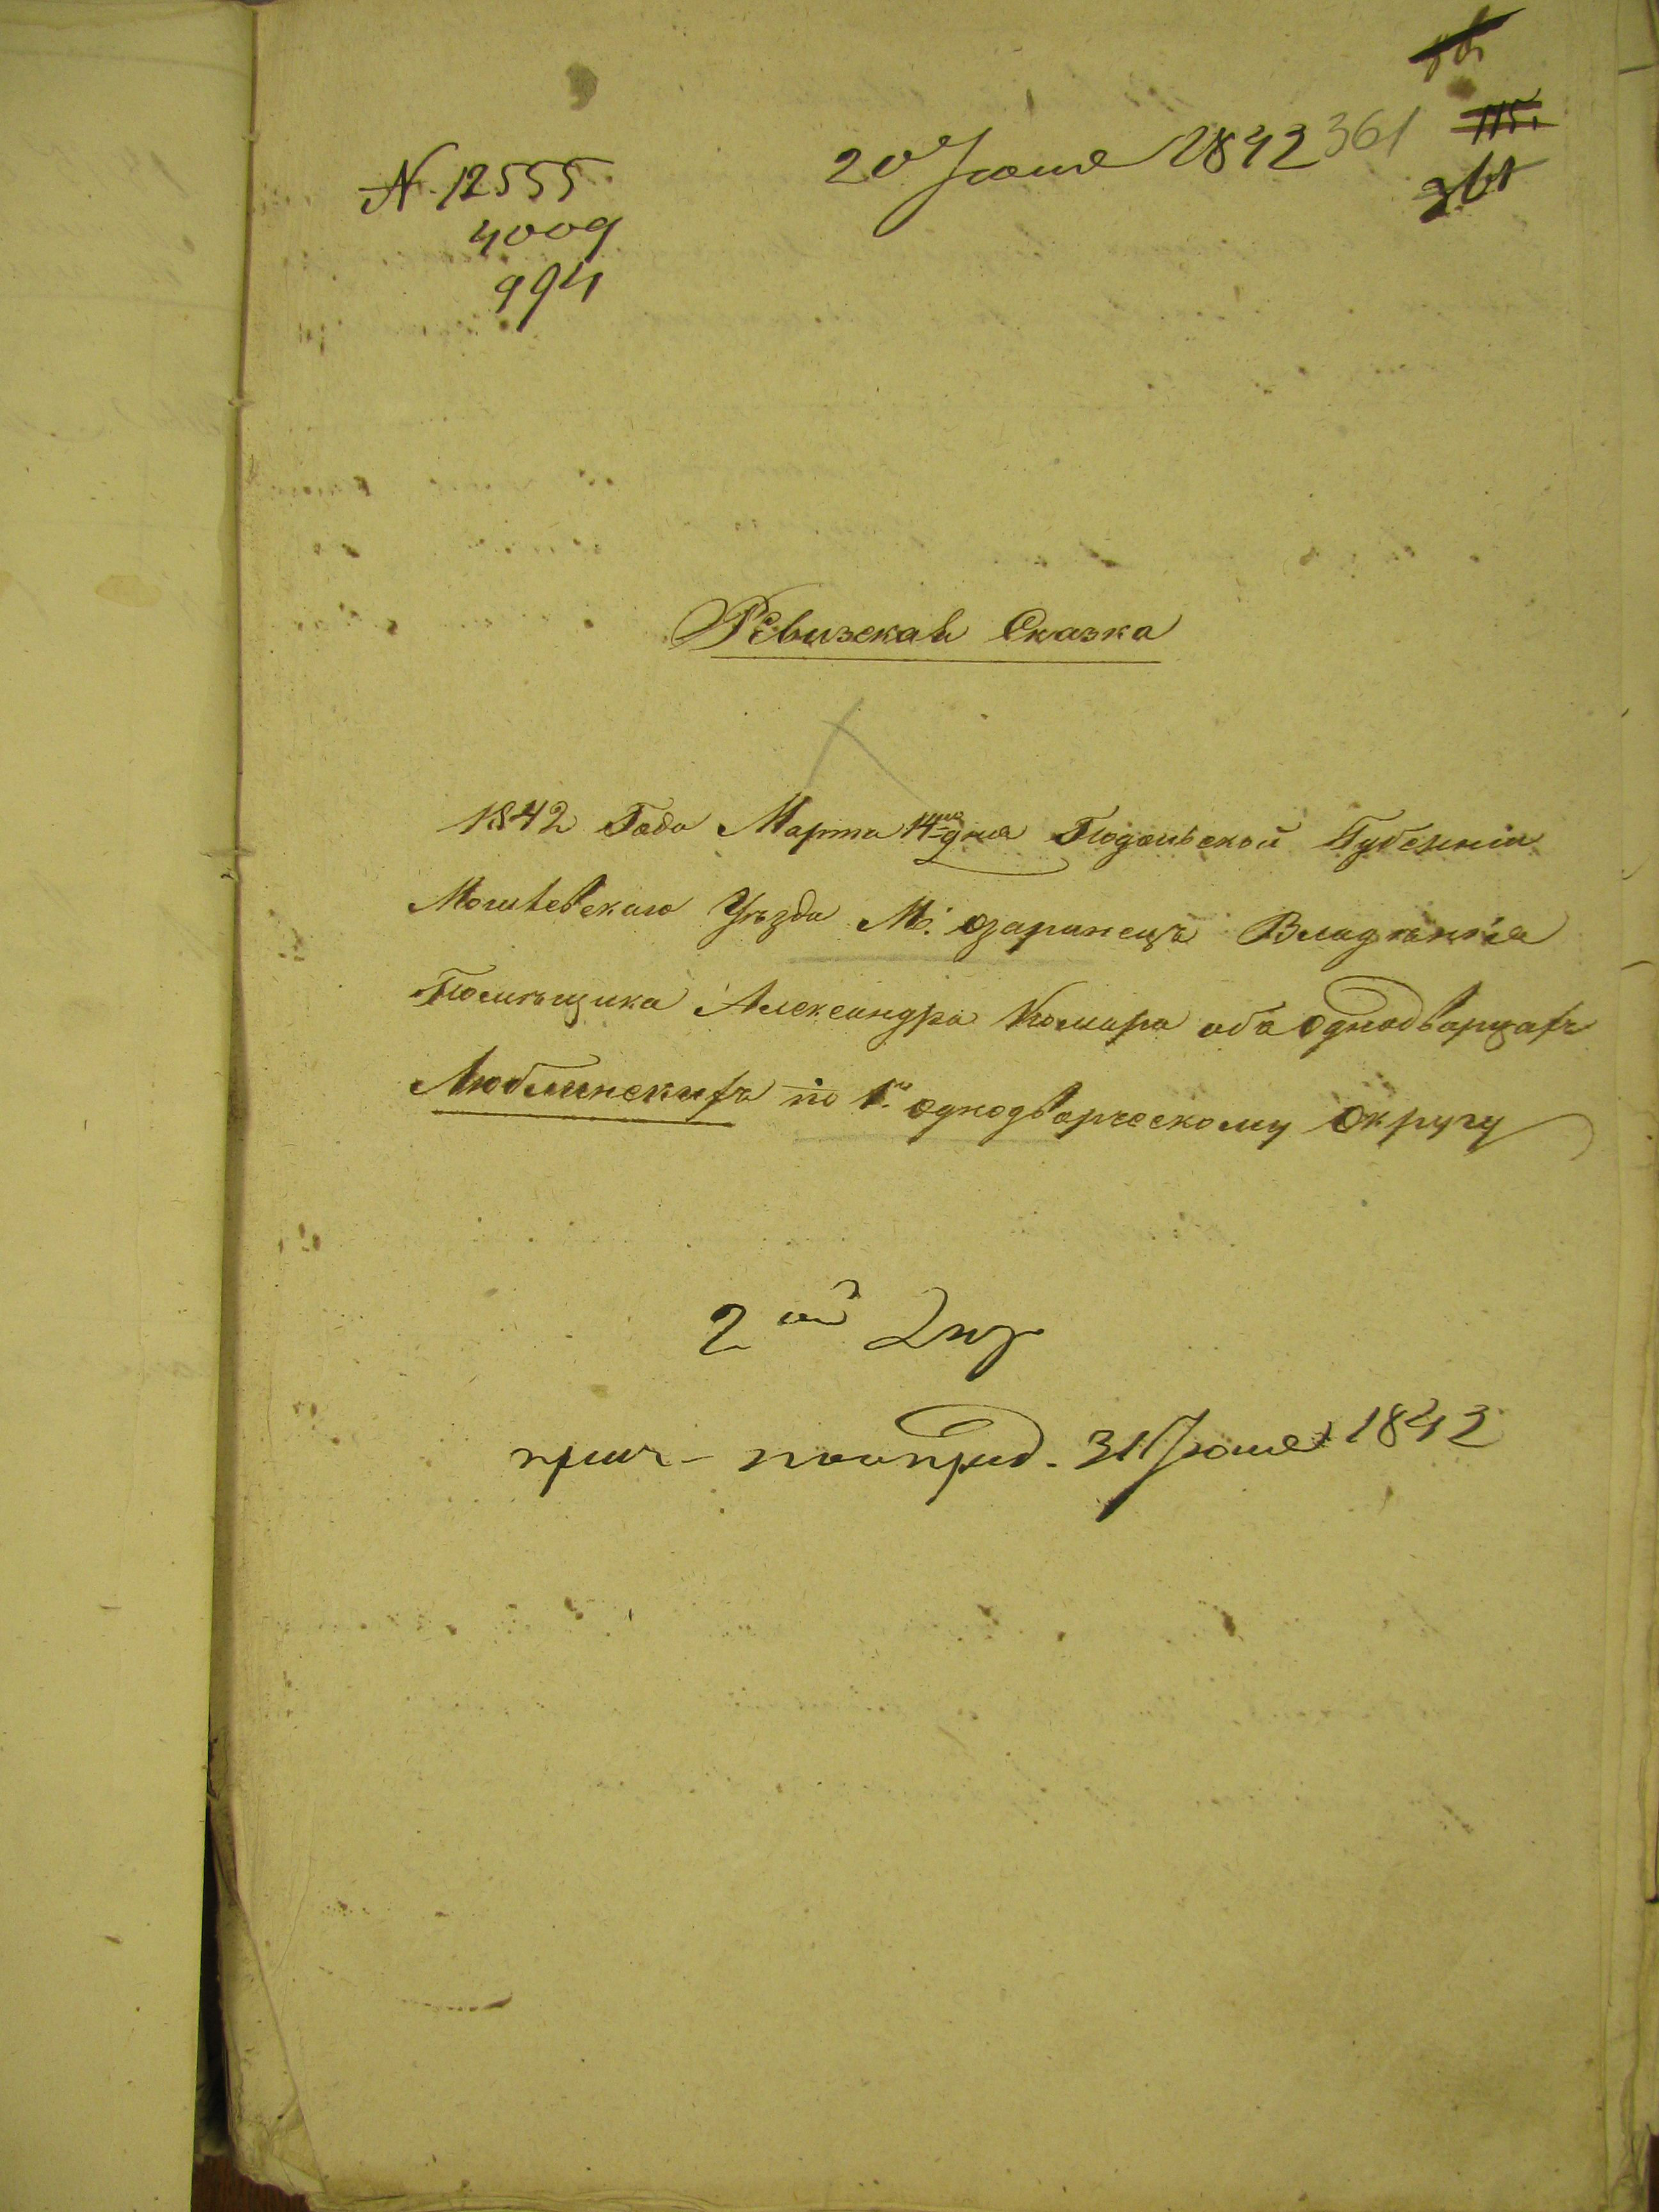 361
N. 12555
20 Июня 1842
361
115.
4009
994
Ревизская Сказка
1842 Года Марта 14го дня Подольской Губерніи
Могилевскаго Уѣзда М: Озаринецъ Владѣнія
Помѣщика Александра Комара объ Однодварцахъ
Люблинскихъ по 1му однодварческому Округу
2ой
31 Июня 1842